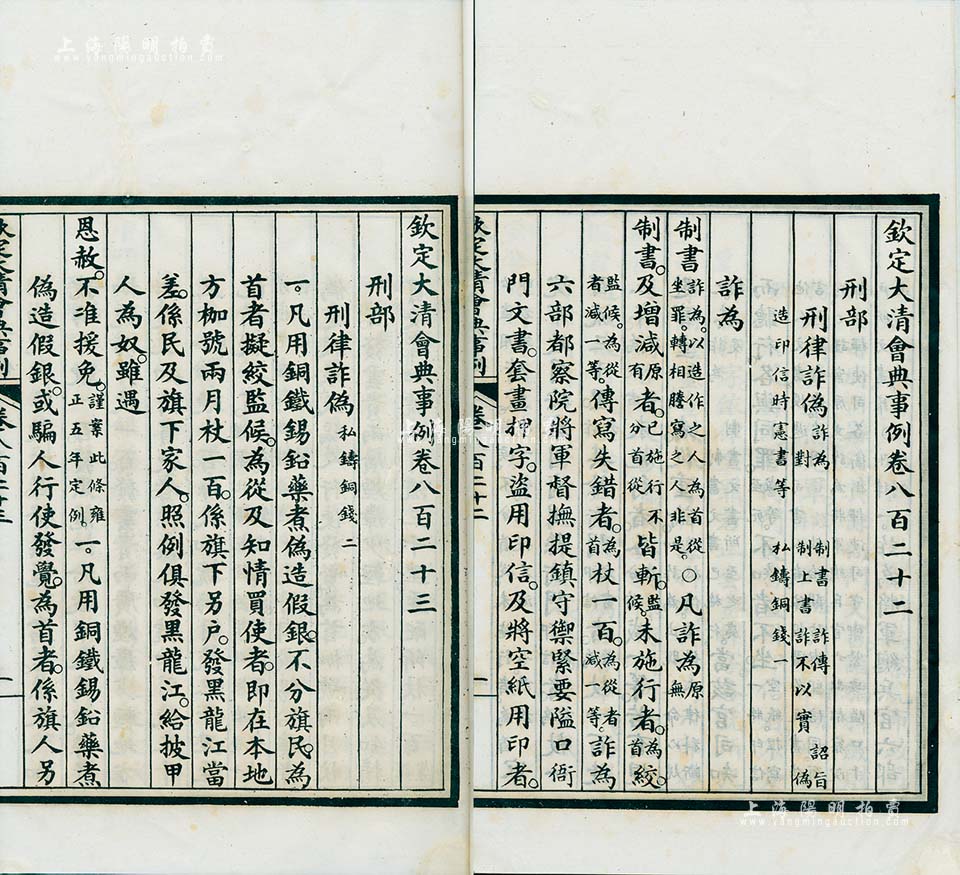 上海陽明拍賣
www.yangmingauction.com
欽定大清會典事例卷八百二十二
刑部
刑律詐偽 詐為制書 詐傳詔旨 對制上書詐不以實 偽造印信時憲書等 私鑄銅錢一
詐為
制書 詐為。以造作之人為首從坐罪。轉相謄寫之人非是。○凡詐為 原無
制書。及增減 原有 者。已施行不分首從 皆斬。監候。未施行者。為首 絞。
監候。為從者減一等。傳寫失錯者。為首 杖一百。為從者減一等。詐為
六部都察院將軍督撫提鎮守禦緊要隘口衙
門文書。套畫押字。盜用印信。及將空紙用印者。
欽定大清會典事例 卷八百二十二 一
欽定大清會典事例卷八百二十三
刑部
刑律詐偽 私鑄銅錢二
一。凡用銅鐵錫鉛藥煮偽造假銀。不分旗民。為
首者擬絞監候。為從及知情買使者。即在本地
方枷號兩月杖一百。係旗下另戶。發黑龍江當
差。係民及旗下家人。照例俱發黑龍江。給披甲
人為奴。雖遇
恩赦。不准援免。謹案此條雍正五年定例。一。凡用銅鐵錫鉛藥煮
偽造假銀。或騙人行使發覺。為首者。係旗人另
欽定大清會典事例 卷八百二十三 一
上海陽明拍賣
www.yangmingauction.com
上海陽明拍賣
www.yangmingauction.com